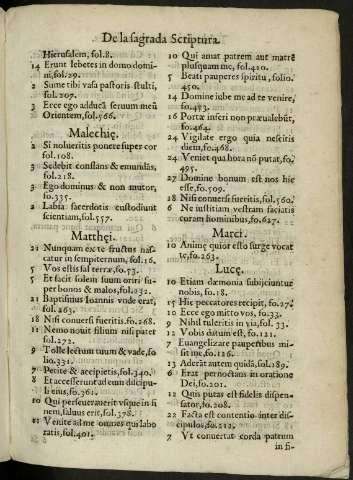 De la sagrada Scriptura.
Hierusalem, fol.8.
14 Erunt lebetes in domo domi-
ni, fol.29.
2 Sume tibi vasa pastoris stulti,
fol.207.
3 Ecce ego adducā seruum meū
Orientem, fol.566.
Malechię.
2 Si nolueritis ponere super cor
fol.108.
3 Sedebit conflans & emundās,
fol.218.
3 Ego dominus & non mutor,
fo.335.
2 Labia sacerdotis custodiunt
scientiam, fol.557.
Matthęi.
21 Nunquam ex te fructus nas-
catur in sempiternum, fol.16.
5 Vos estis sal terræ, fo.53.
5 Et facit solem suum oriri su-
per bonos & malos, fol.232.
21 Baptismus Ioannis vnde erat,
fol.263.
18 Nisi conuersi fueritis, fo.268.
11 Nemo nouit filium nisi pater
fol.272.
9 Tolle lectum tuum & vade, fo
lio.331.
7 Petite & accipietis, fol.340.
8 Et accesserunt ad eum discipu-
li eius, fo.361.
10 Qui perseuerauerit vsque in fi
nem, saluus erit, fol.378.
11 Venite ad me omnes qui labo
ratis, fol.401.
10 Qui amat patrem aut matrē
plusquam me, fol.410.
5 Beati pauperes spiritu, folio.
450.
14 Domine iube me ad te venire,
fo.453.
16 Portæ inferi non præualebūt,
fo.464.
24 Vigilate ergo quia nescitis
diem, fo.468.
24 Veniet qua hora nō putat, fo.
495.
27 Domine bonum est nos hic
esse, fo.509.
18 Nisi conuersi fueritis, fol.560.
6 Ne iustitiam vestram faciatis
coram hominibus, fo.627.
Marci.
10 Animę quior esto surge vocat
te, fo.263.
Lucę.
10 Etiam dæmonia subijciuntur
nobis, fo.18.
15 Hic peccatores recipit, fo.27.
10 Ecce ego mitto vos, fo.33.
9 Nihil tuleritis in via, fol.33.
12 Vobis datum est, fo.121.
7 Euangelizare pauperibus mi-
sit me, fo.126.
13 Aderāt autem quidā, fol.189.
6 Erat pernoctans in oratione
Dei, fo.201.
12 Quis putas est fidelis dispen-
sator, fo.208.
22 Facta est contentio inter dis-
cipulos, fo.212.
7 Vt conuertat corda patrum
in fi-